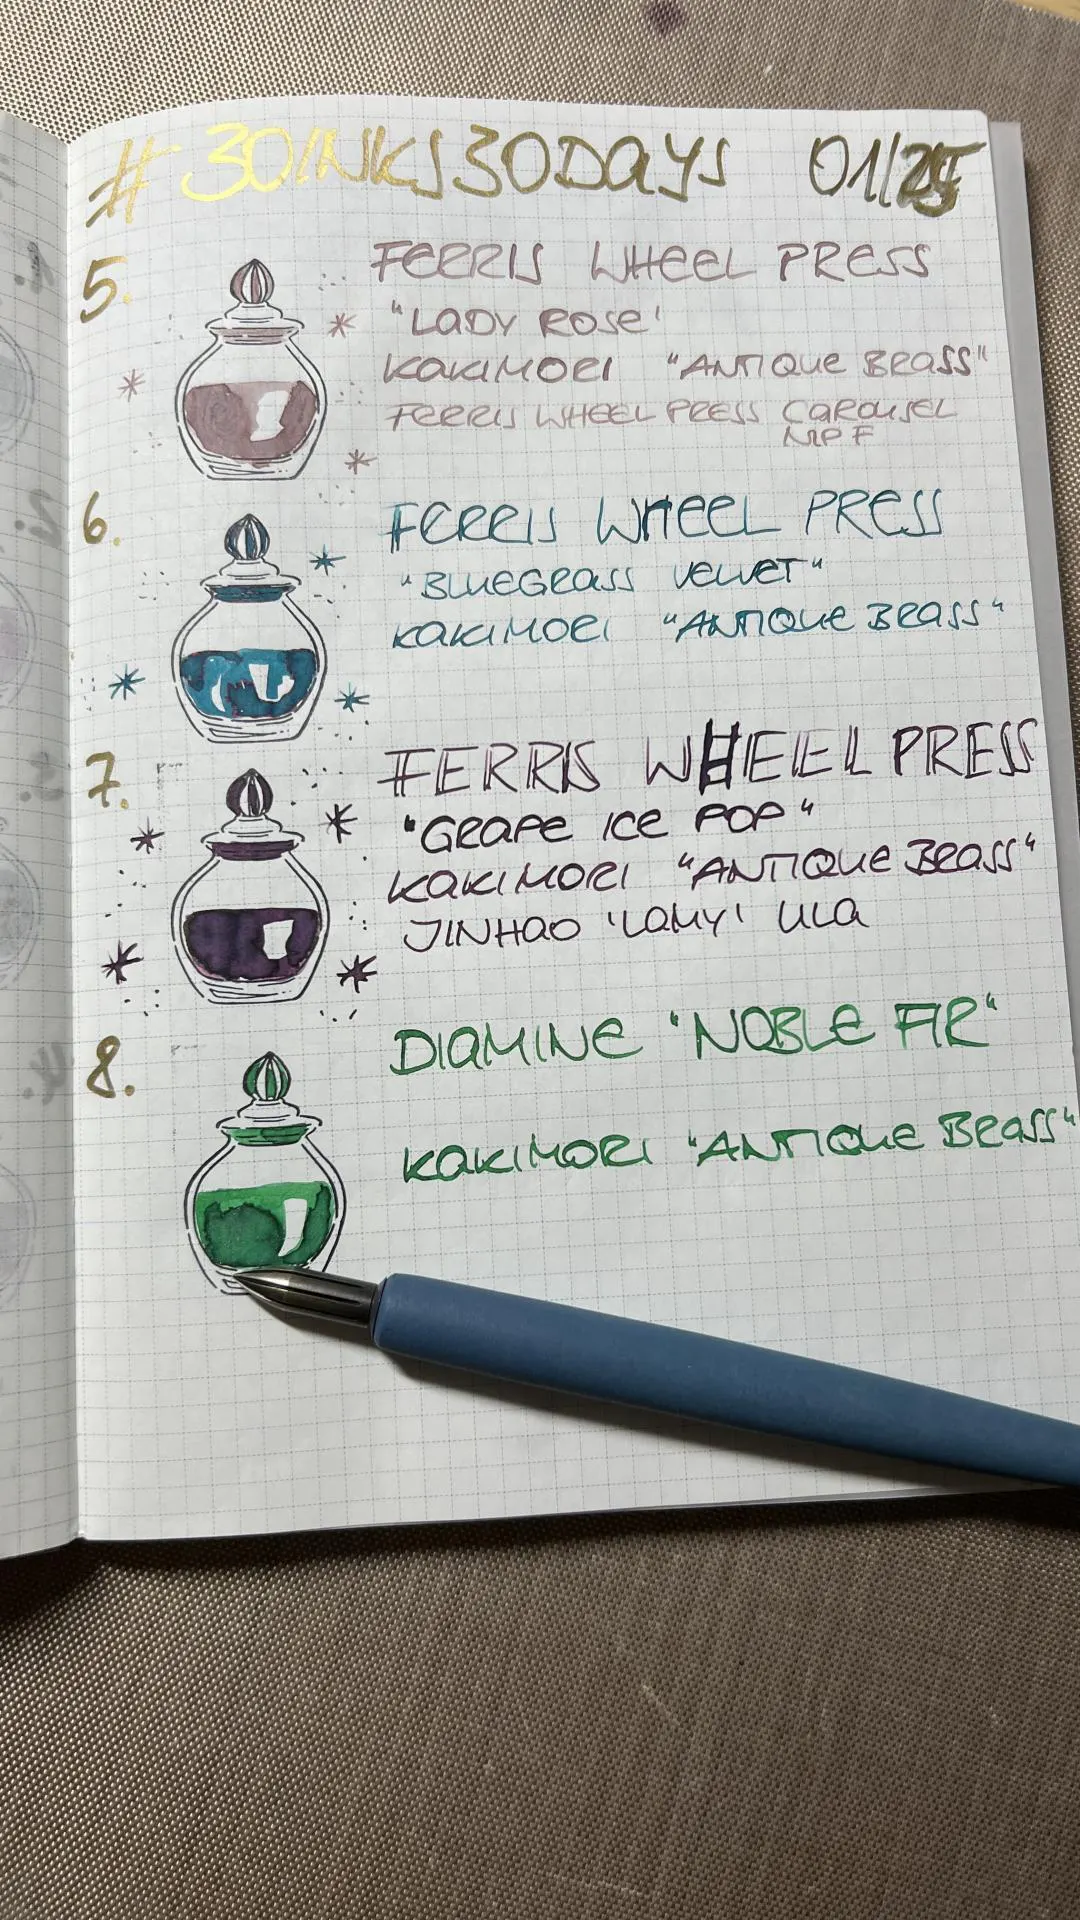 #30INKS30DAYS 01/25
5.
FERRIS WHEEL PRESS
"LADY ROSE'
KAKIMORI "ANTIQUE BRASS"
FERRIS WHEEL PRESS CAROUSEL
6.
FERRIS WHEEL PRESS
"BLUEGRASS VELVET"
KAKIMORI "ANTIQUE BRASS"
7.
FERRIS WHEEL PRESS
"GRAPE ICE POP"
KAKIMORI "ANTIQUE BRASS"
JINHAO 'LAMY'
8.
DIAMINE "NOBLE FIR"
KAKIMORI "ANTIQUE BRASS"